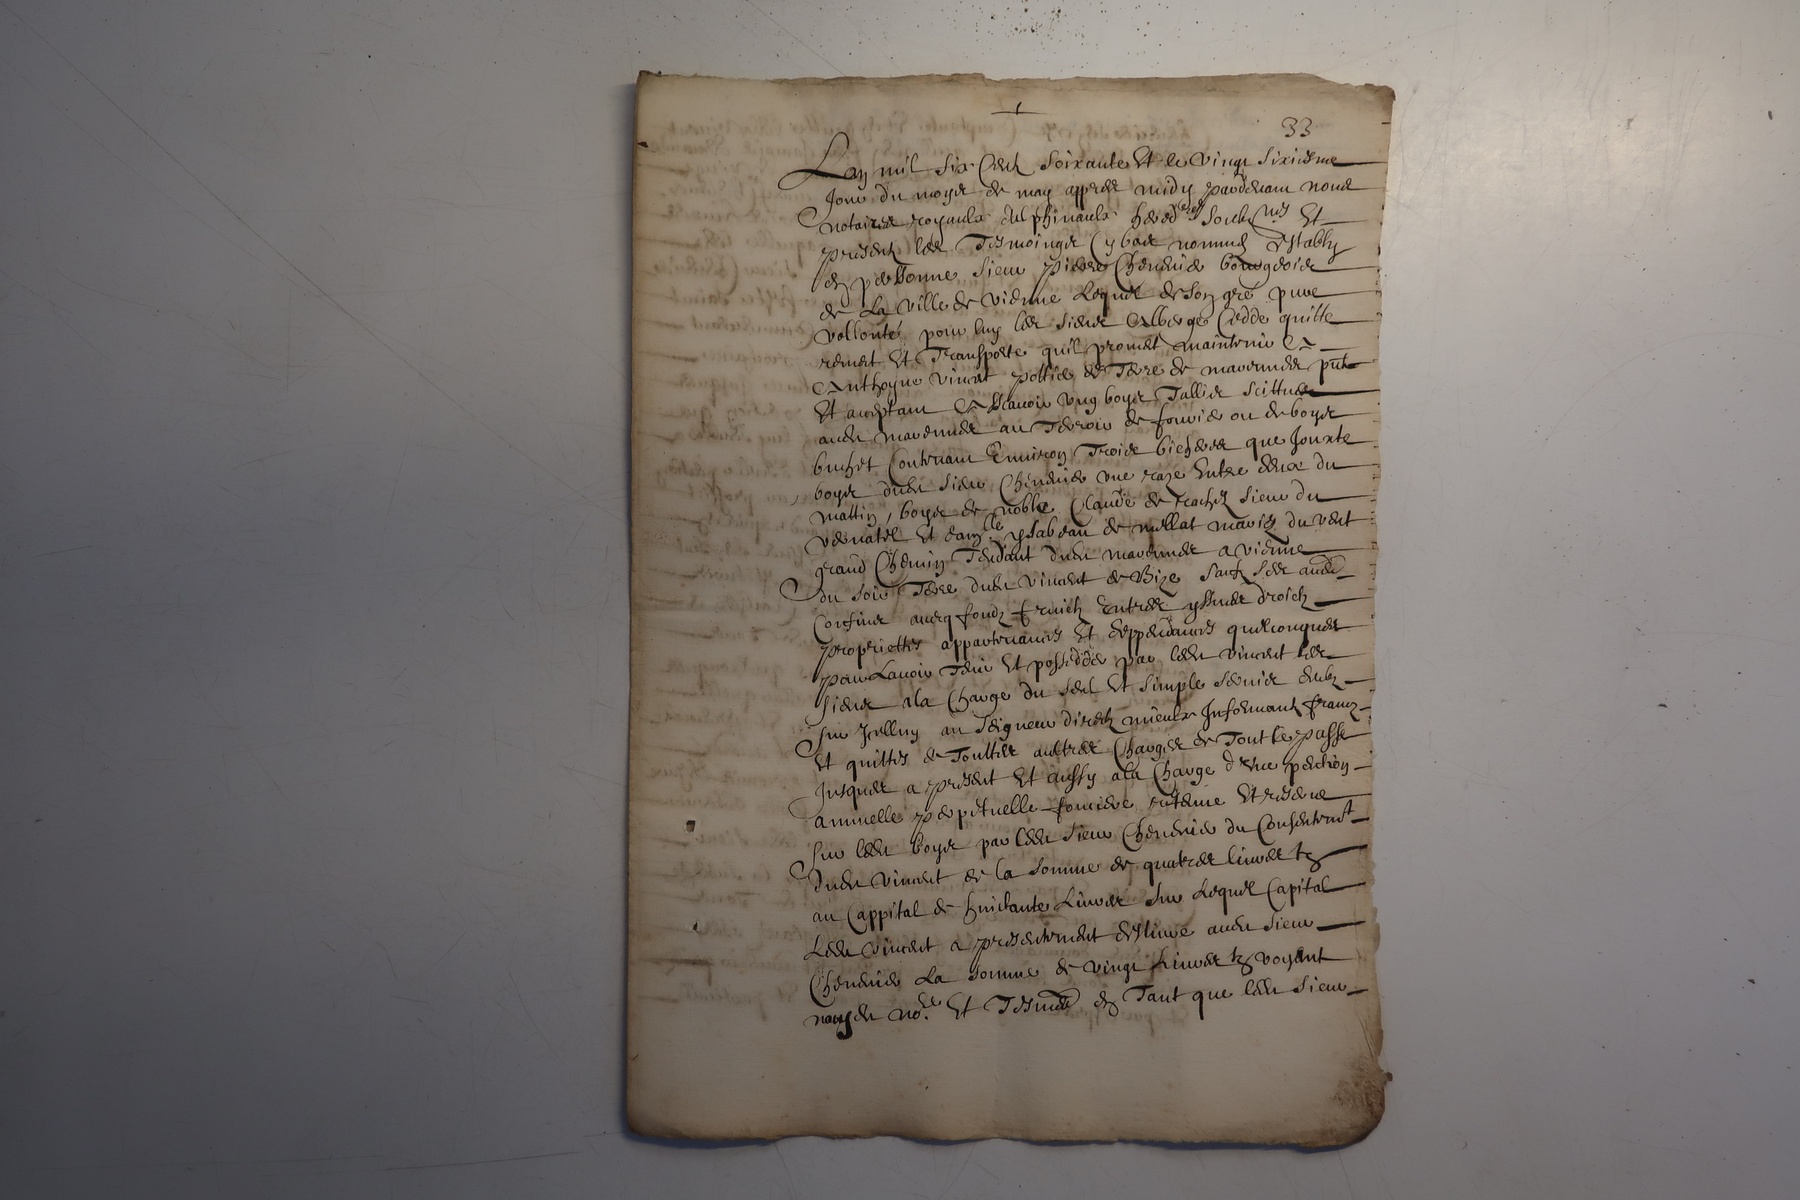 33
Lan mil six cens soixante et le vingt sixiesme
jour du moys de may appres midy pardevant nous
notaires royaulx delphinaulx hered.res soubz.nés et
presentz les tesmoingz cy bas nommez estably
en personne sieur pierre Chenevie bourgeois
de la ville de vienne lequel de son gré pure
vollonté pour luy les siens cedde quitte
remet et transporte quil promet maintenir a
Anthoyne vincent de terre de marennes pnt
et acceptant a scavoir ung boys tallis scittués
aud marennes au terroir de ou de boys
buchet contenant environ trois bicherés que jouxte
boys dud sieur Chenevie une raze entre deux du
mattin, boys de noble Claude de sieur du
vernatel et dam.lle ysabeau de mariez du vent
grand chemin tendant dud marennes a vienne
du soir terre dud vincent de bize sauf ses aultres
confins avecq fondz fruictz entrées yssues droictz
propriettés appartenances et deppendances quelconques
pour lavoir tenir et posseder par led vincent les
siens a la charge du seul et simple servis deub
sur icelluy au seigneur direct mieulx informant francz
et quittes de touttes aultres charges de tout le passé
jusques a present et aussy a la charge dune pention
annuelle perpetuelle fonciere retenue et reservé
sur led boys par led sieur Chenevie du consentem.t
dud vincent de la somme de quatres livres tz
au cappital de huictante livres sur lequel capital
led vincent a presentement deslivré aud sieur
Chenevie la somme de vingt livres tz voyant
nousd no.re et tesmoins en tant que led sieur